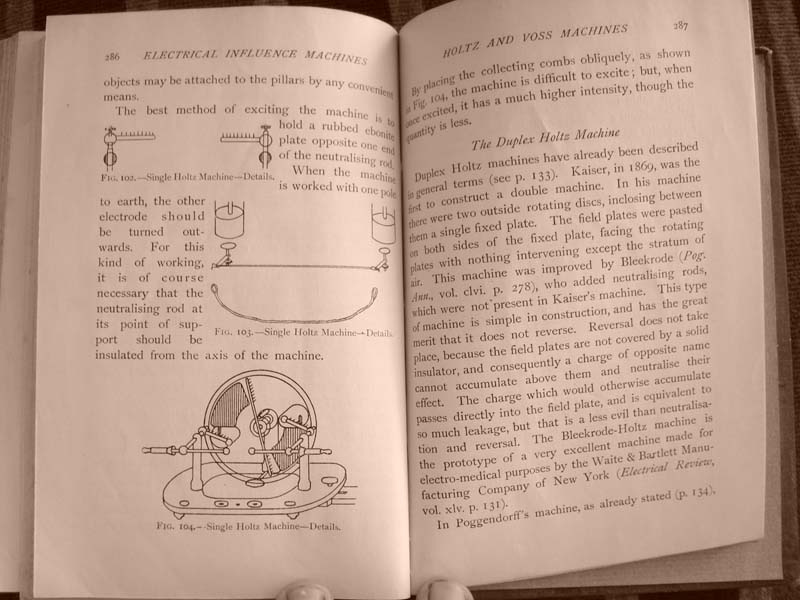 286 ELECTRICAL INFLUENCE MACHINES
objects may be attached to the pillars by any convenient
means.
The best method of exciting the machine is to
hold a rubbed ebonite
plate opposite one end
of the neutralising rod.
FIG. 102.—Single Holtz Machine—Details.
When the machine
is worked with one pole
to earth, the other
electrode should
be turned out-
wards. For this
kind of working,
it is of course
necessary that the
neutralising rod at
its point of sup-
port should be
FIG. 103.—Single Holtz Machine—Details.
insulated from the axis of the machine.
FIG. 104.—Single Holtz Machine—Details.
HOLTZ AND VOSS MACHINES 287
By placing the collecting combs obliquely, as shown
in Fig. 104, the machine is difficult to excite; but, when
once excited, it has a much higher intensity, though the
quantity is less.
The Duplex Holtz Machine
Duplex Holtz machines have already been described
in general terms (see p. 133). Kaiser, in 1869, was the
first to construct a double machine. In his machine
there were two outside rotating discs, inclosing between
them a single fixed plate. The field plates were pasted
on both sides of the fixed plate, facing the rotating
plates with nothing intervening except the stratum of
air. This machine was improved by Bleekrode (Pog.
Ann., vol. clvi. p. 278), who added neutralising rods,
which were not present in Kaiser's machine. This type
of machine is simple in construction, and has the great
merit that it does not reverse. Reversal does not take
place, because the field plates are not covered by a solid
insulator, and consequently a charge of opposite name
cannot accumulate above them and neutralise their
effect. The charge which would otherwise accumulate
passes directly into the field plate, and is equivalent to
so much leakage, but that is a less evil than neutralisa-
tion and reversal. The Bleekrode-Holtz machine is
the prototype of a very excellent machine made for
electro-medical purposes by the Waite & Bartlett Manu-
facturing Company of New York (Electrical Review,
vol. xlv. p. 131).
In Poggendorff's machine, as already stated (p. 134),